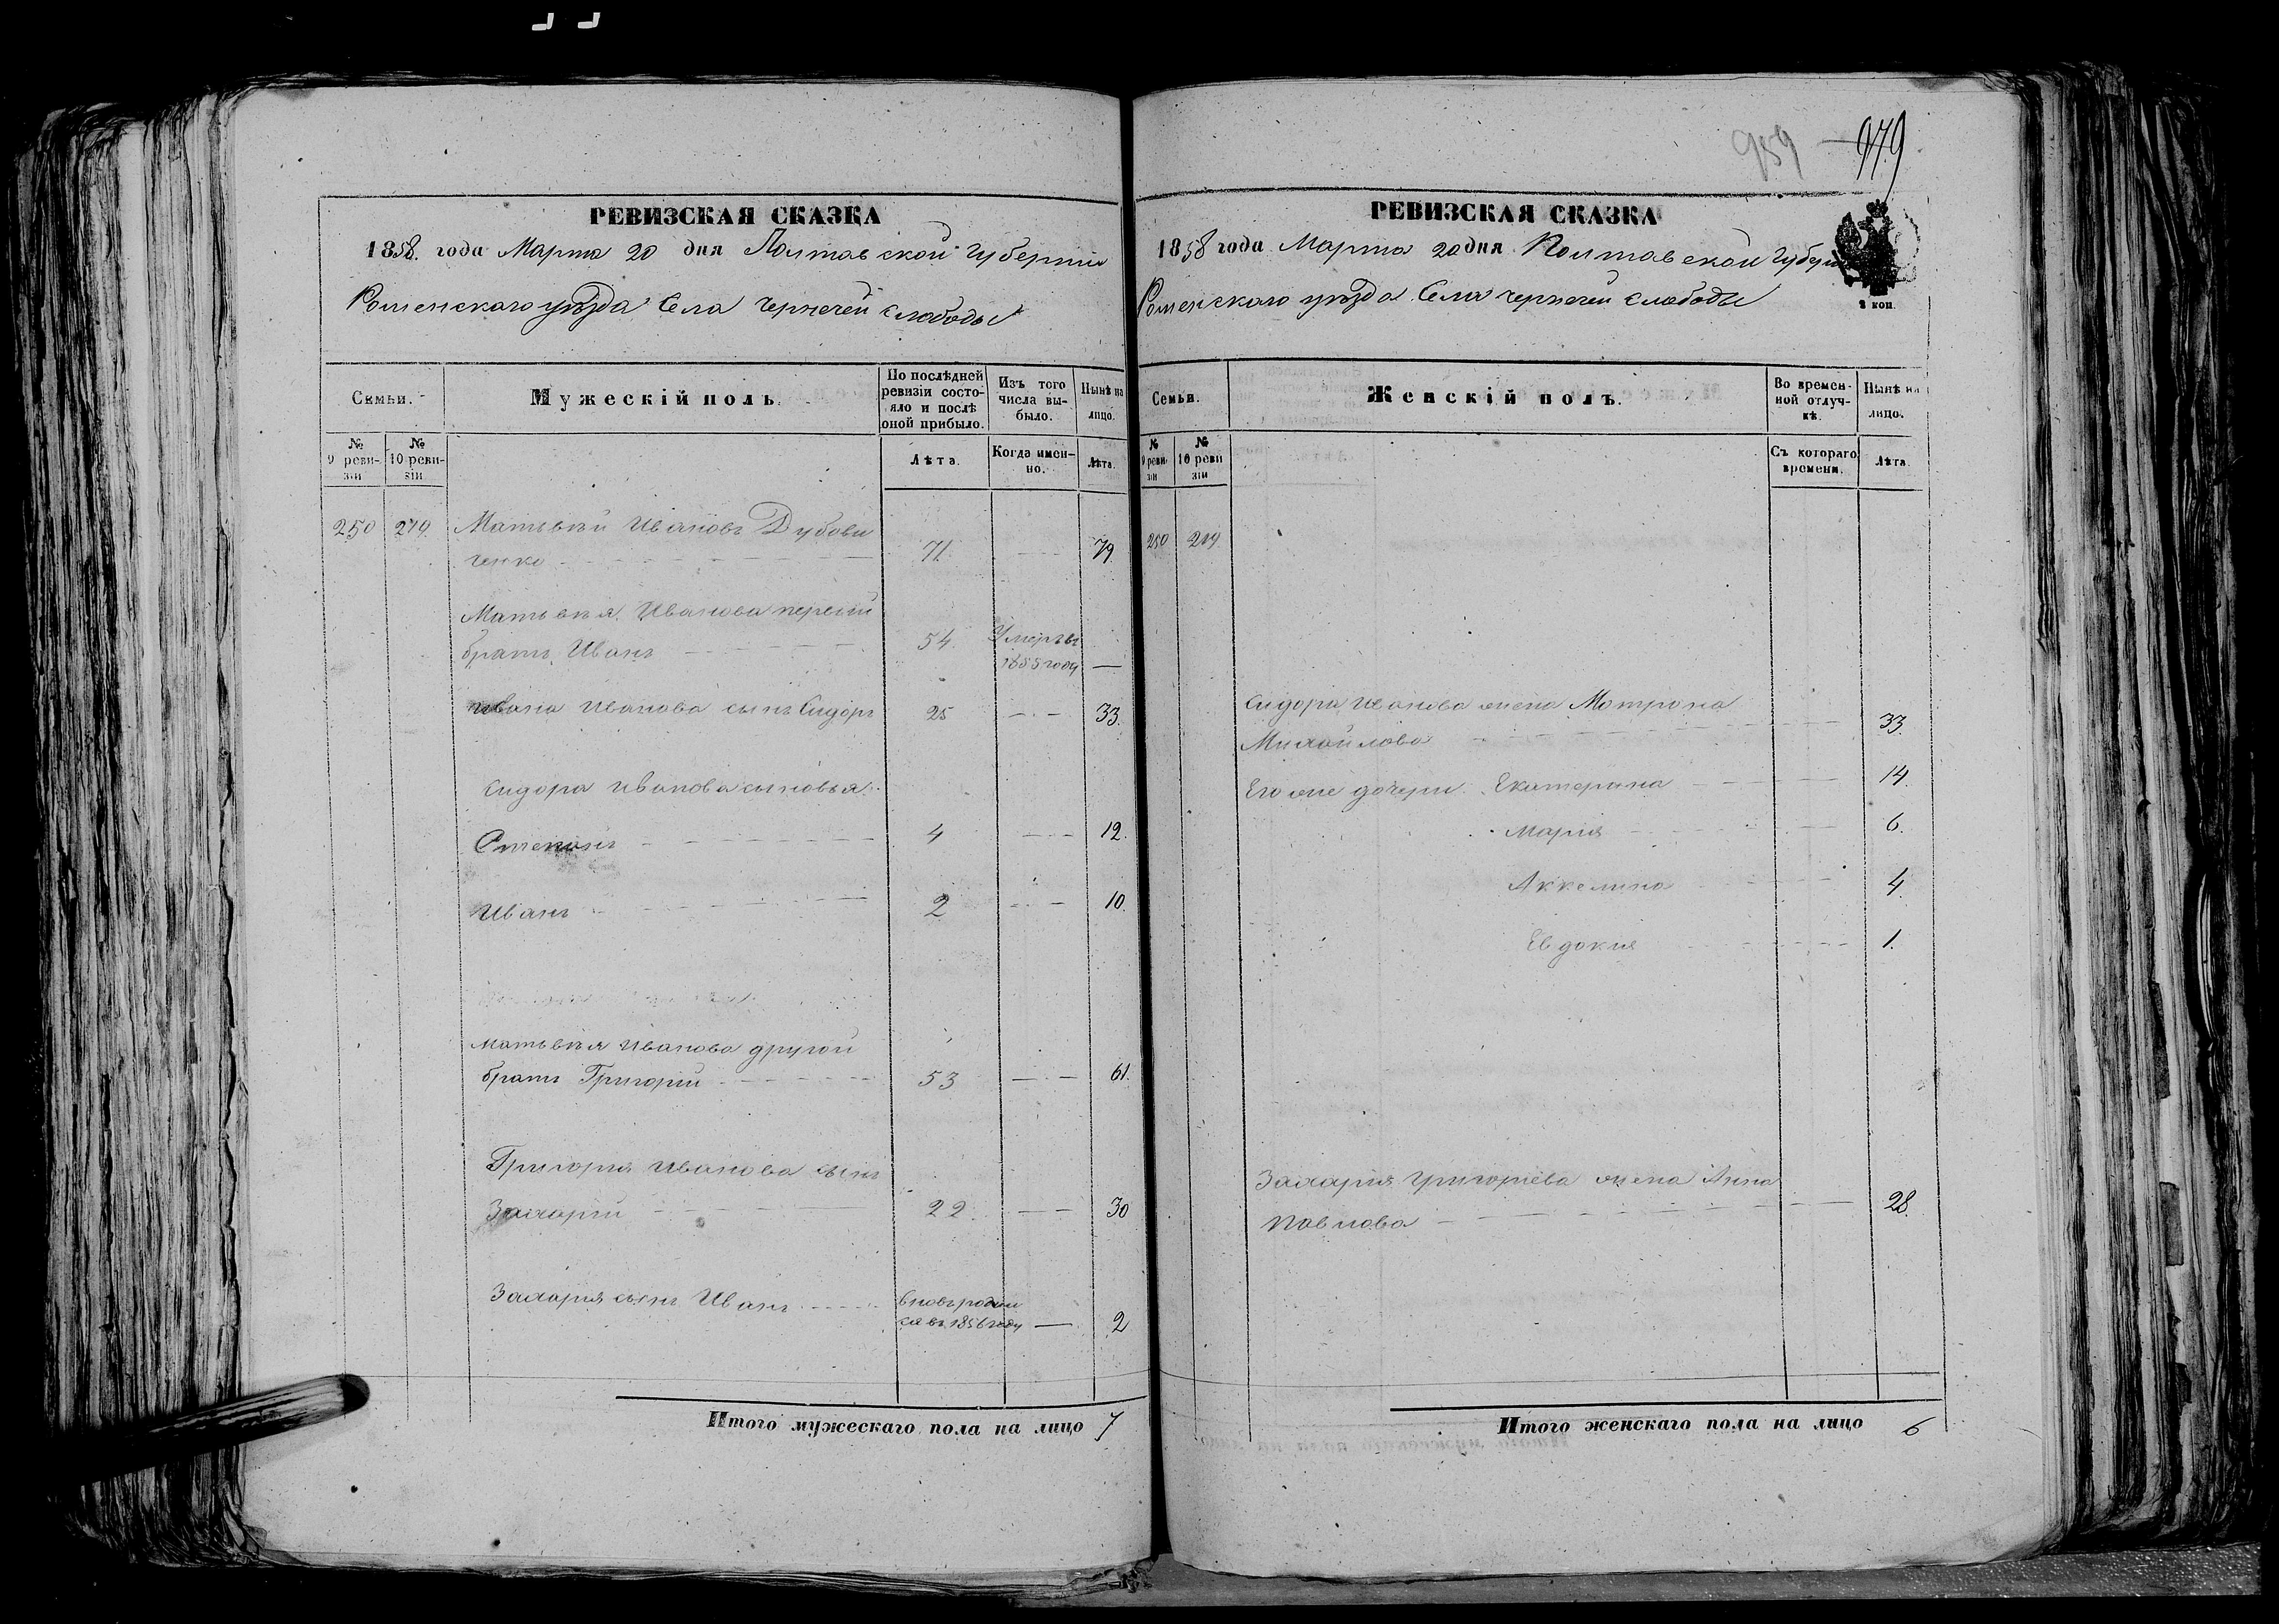 959 — 979
РЕВИЗСКАЯ СКАЗКА
1858. года Марта 20 дня Полтавской губернии
Роменскаго уѣзда Села Чернечей слободы
Семьи.
Мужескій полъ.
По послѣдней ревизіи состояло и послѣ оной прибыло.
Изъ того числа выбыло.
Нынѣ на лицо.
№ 9 ревизіи
№ 10 ревизіи
Лѣта.
Когда именно.
Лѣта.
250 219 Матвѣй Ивановъ Дубови
ченко 71. 79.
Матвѣя Иванова первый
братъ Иванъ 54. Умеръ въ
1855 году —
Ивана Иванова сынъ Сидоръ 25 33.
Сидора Иванова сыновья.
Степанъ 4 12.
Иванъ 2 10.
Матвѣя Иванова другой
братъ Григорій 53 61.
Григорія Иванова сынъ
Захарій 22. 30
Захарія сынъ Иванъ вновь родил
ся въ 1856 году — 2
Итого мужескаго пола на лицо 7
РЕВИЗСКАЯ СКАЗКА
1858 года Марта 20 дня Полтавской губерн
Роменскаго уѣзда Села Чернечей слободы
2 коп.
Семьи.
Женскій полъ.
Во временной отлучкѣ.
Нынѣ на лицо.
№ 9 ревизіи
№ 10 ревизіи
Съ котораго времени.
Лѣта
250 219.
Сидора Иванова жена Мотрона
Михайлова 33.
Его же дочери. Екатерина 14.
Марія 6.
Аккелина 4.
Евдокия 1.
Захарія Григорьева жена Анна
Павлова 28.
Итого женскаго пола на лицо 6